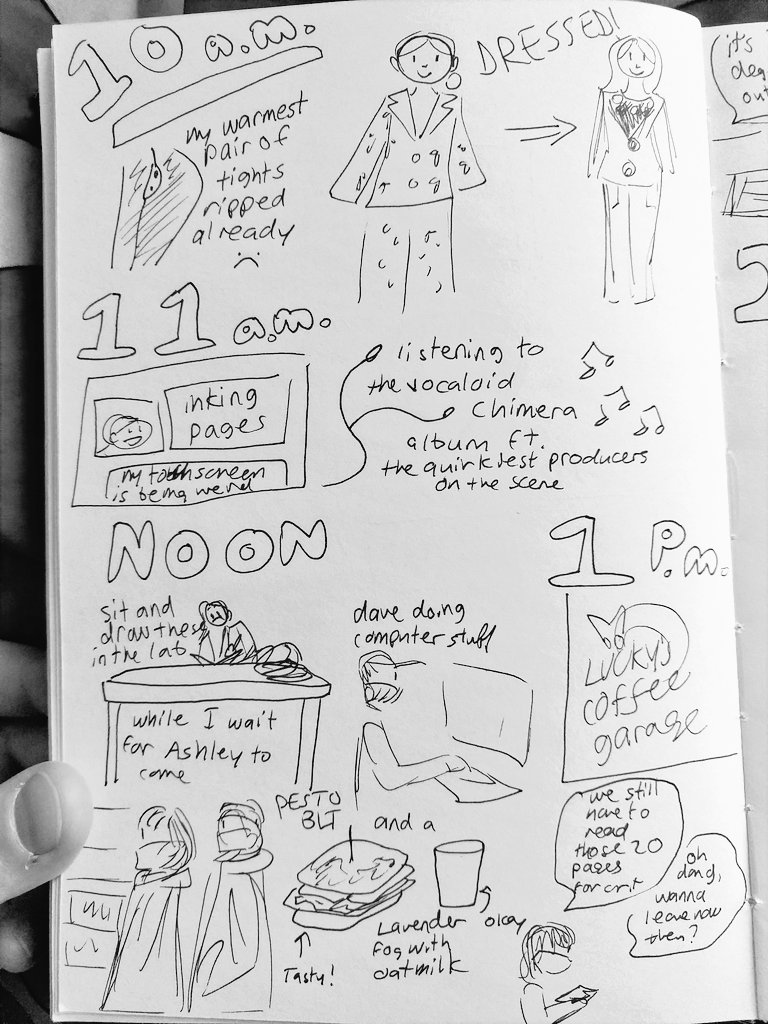 10 a.m.
my warmest
pair of
tights
ripped
already
:(
DRESSED!
11 a.m.
inking
pages
my touchscreen
is being weird
listening to
the vocaloid
Chimera
album ft.
the quirkiest producers
on the scene
NOON
sit and
draw these
in the lab
while I wait
for Ashley to
come
dave doing
computer stuff
1 P.m.
LUCKY'S
coffee
garage
PESTO
BLT
and a
Tasty!
Lavender
fog with
oatmilk
okay
we still
have to
read
those 20
pages
for crit
oh
dang,
wanna
leave now
then?
it's
out
2